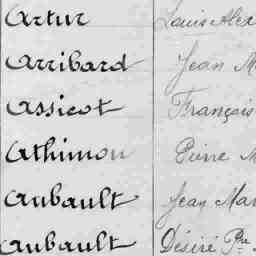 Artur Louis Alex
Arribard Jean M
Assicot François
Athimon Pierre M
Aubault Jean Mar
Aubault Désiré Pre